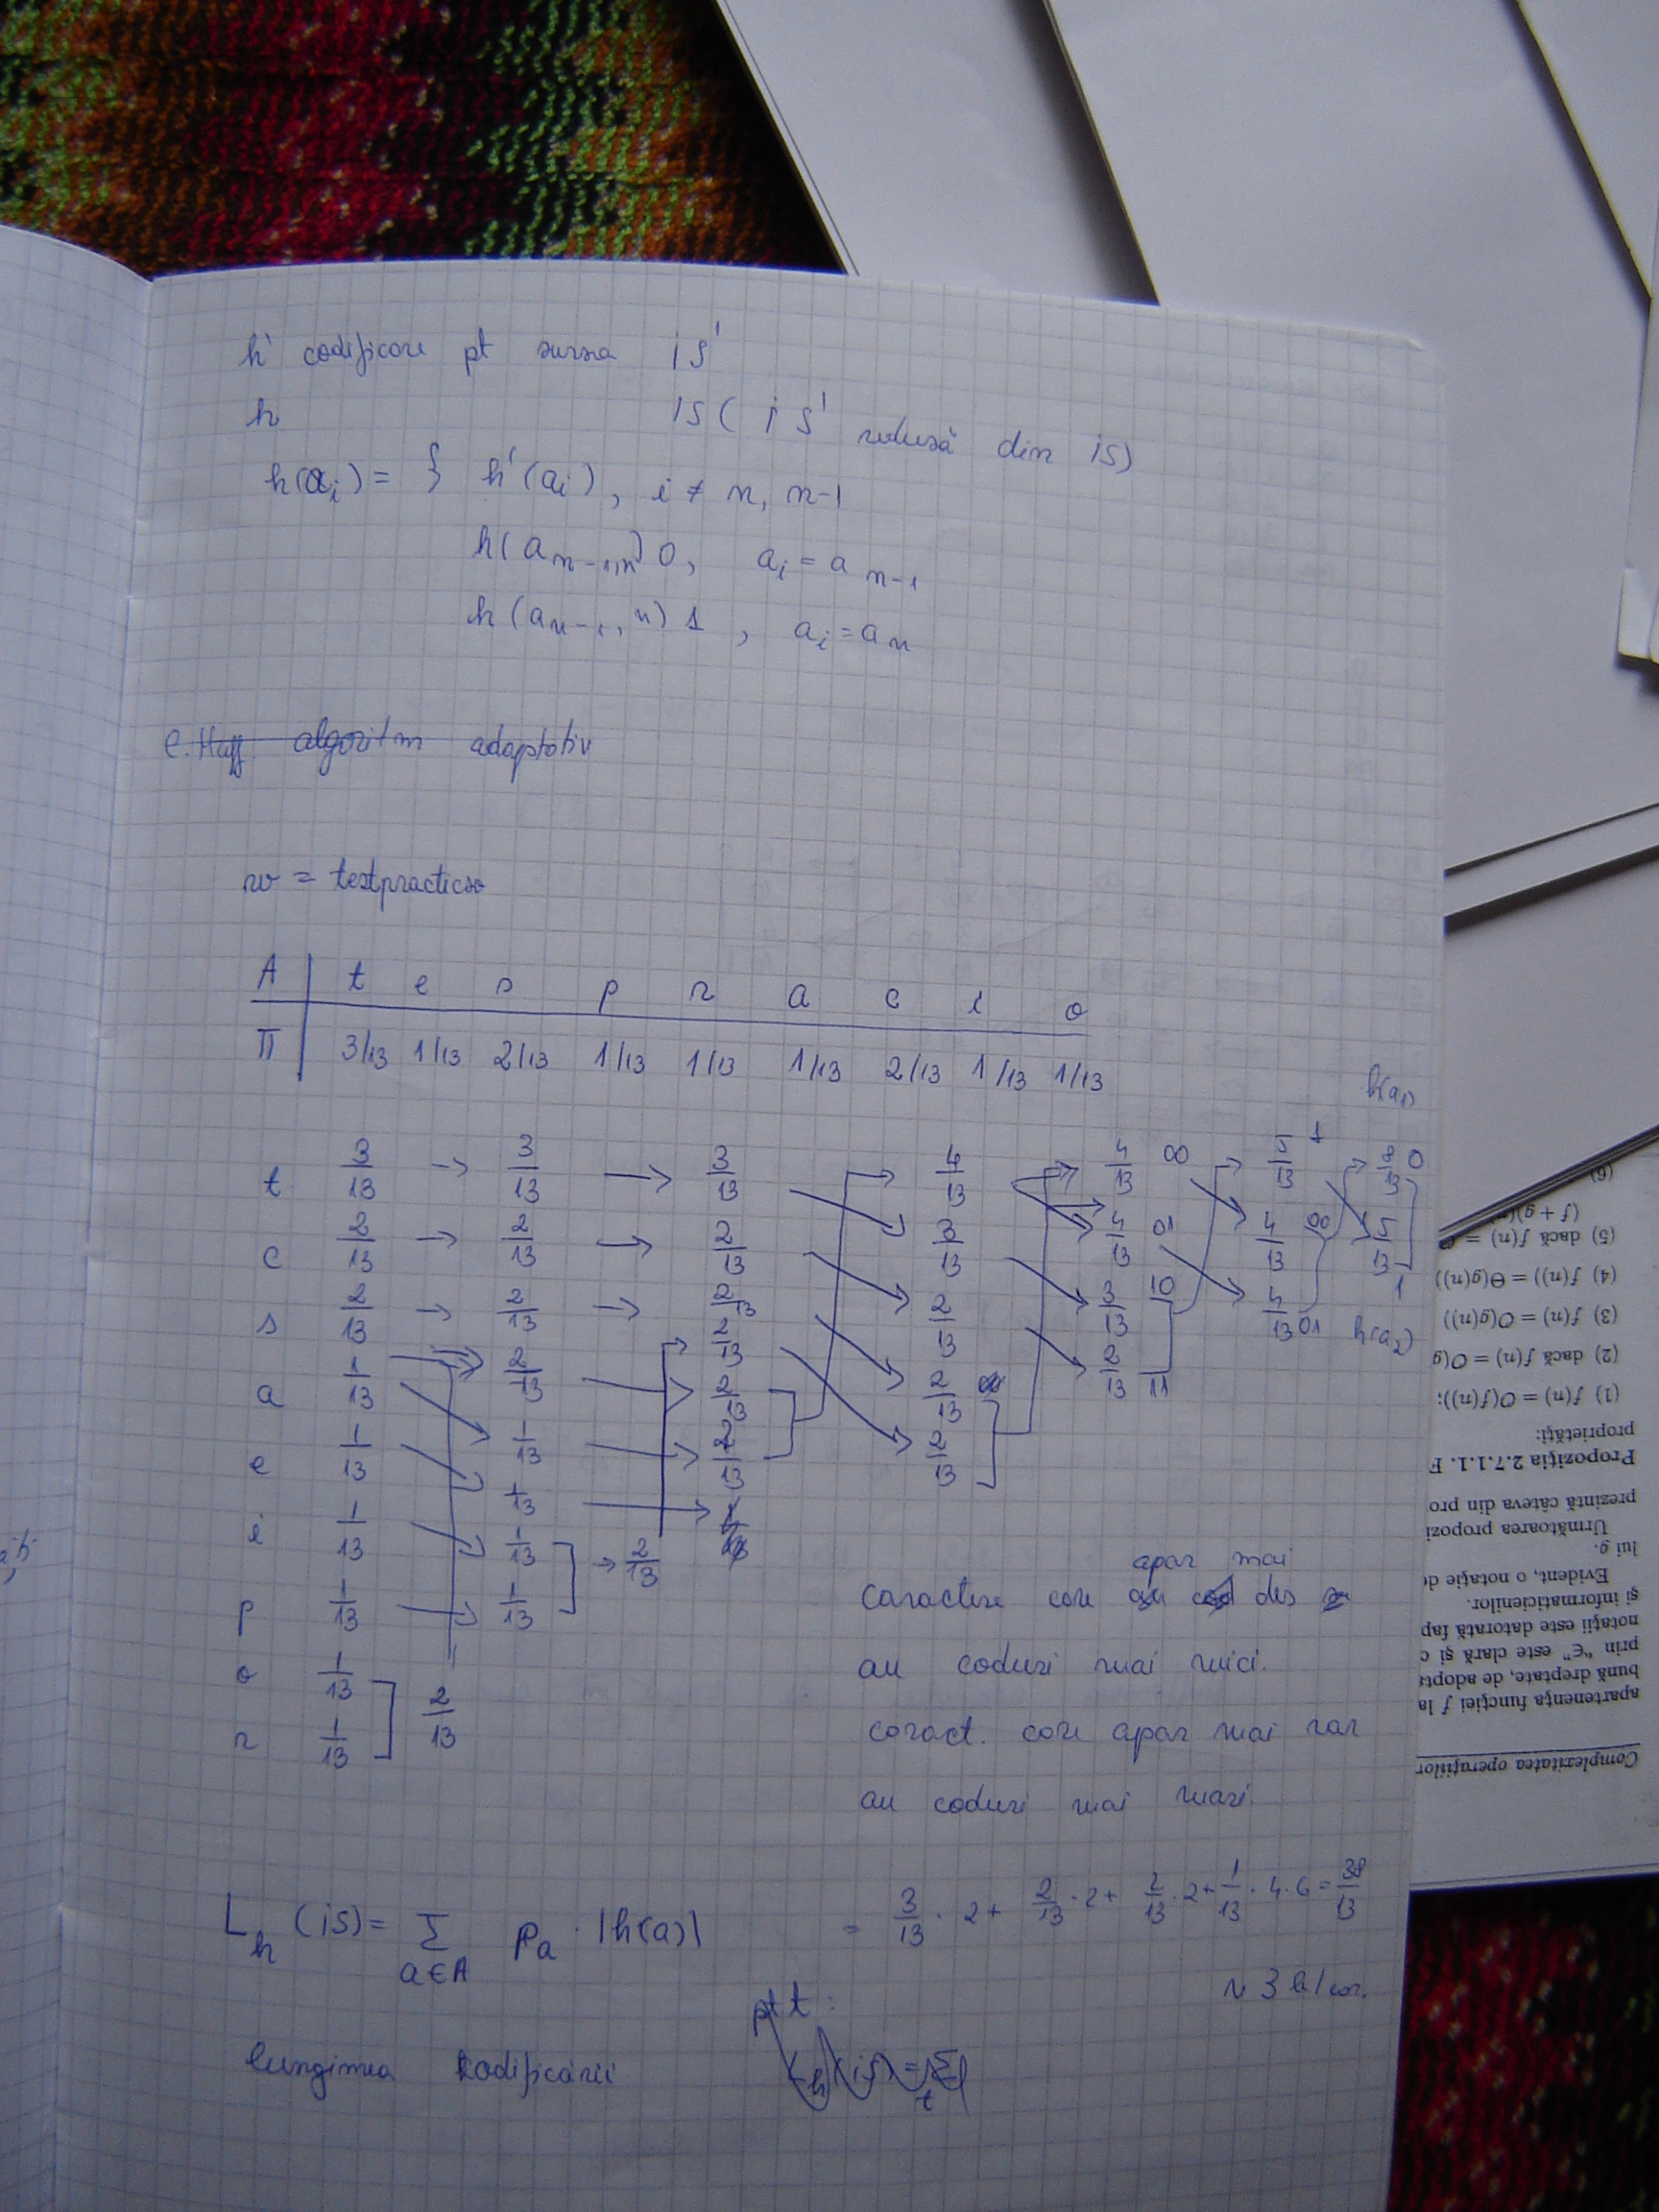 h' codificare pt sursa IS'
h IS ( IS' redusă din IS)
h(a_i) = { h'(a_i), i ≠ n, n-1
h(a_{n-1,n}) 0, a_i = a_{n-1}
h(a_{n-1,n}) 1, a_i = a_n
C. Huff. algoritm adaptativ
w = testpracticso
A | t e s p r a c i o
Π | 3/13 1/13 2/13 1/13 1/13 1/13 2/13 1/13 1/13
h(a1)
t 3/13 → 3/13 → 3/13 4/13 4/13 00 5/13 1 8/13 0
c 2/13 → 2/13 → 2/13 3/13 4/13 01 4/13 00 5/13 1
s 2/13 → 2/13 → 2/13 2/13 3/13 10 4/13 01 h(a2)
2/13
a 1/13 2/13 2/13 2/13 2/13 11
e 1/13 1/13 2/13 2/13
i 1/13 1/13
1/13 → 2/13
p 1/13 1/13
o 1/13
2/13
r 1/13
apar mai
caractere care des
au coduri mai mici.
caract. care apar mai rar
au coduri mai mari.
L_h (IS) = Σ_{a∈A} p_a · |h(a)| = 3/13 · 2 + 2/13 · 2 + 2/13 · 2 + 1/13 · 4 · 6 = 38/13
~ 3 b/car.
pt t:
L_h(IS) = Σ_t
lungimea codificării
Complexitatea operațiilor
apartenența funcției f la
bună dreptate, de adopta
prin "∈" este clară și c
notații este datorată fap
și informaticienilor.
Evident, o notație de
lui g.
Următoarea propozi
prezintă câteva din pro
Propoziția 2.7.1.1. F
proprietăți:
(1) f(n) = O(f(n));
(2) dacă f(n) = O(g
(3) f(n) = O(g(n))
(4) f(n)) = Θ(g(n))
(5) dacă f(n) =
(f + g)(n)
(6)